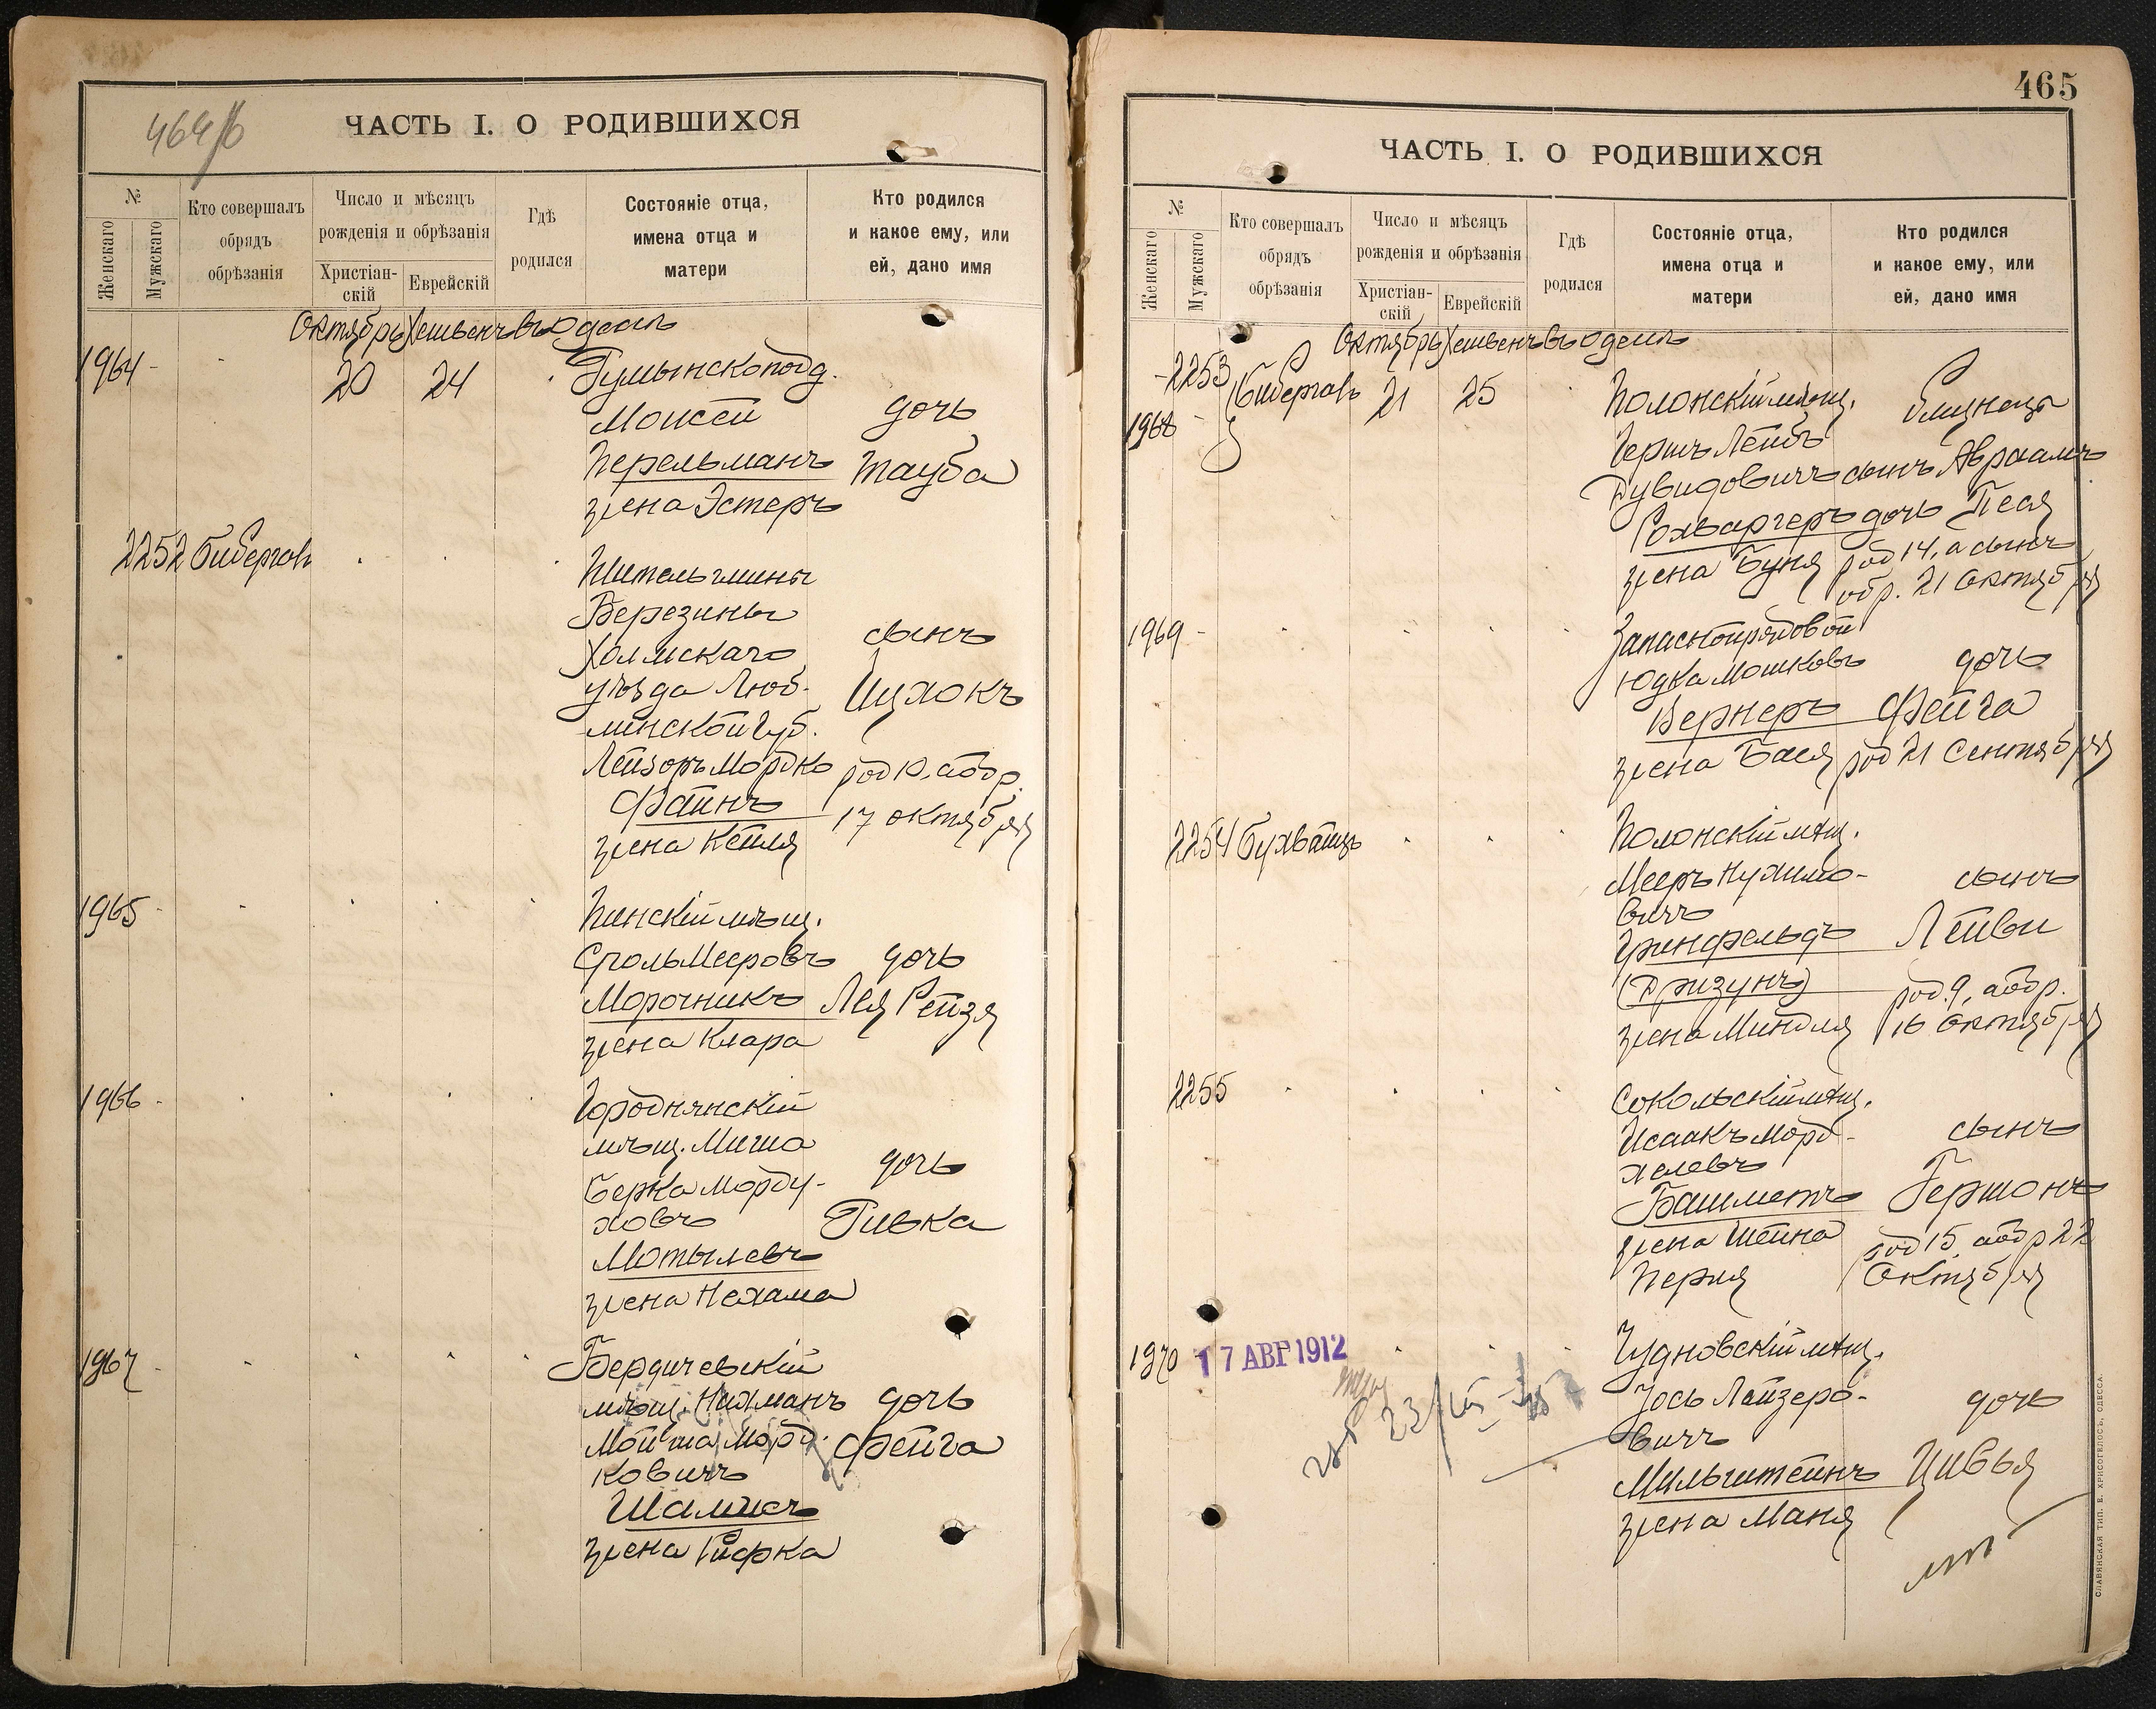 464/б
ЧАСТЬ I. О РОДИВШИХСЯ
№
Женскаго
Мужскаго
Кто совершалъ обрядъ обрѣзанія
Число и мѣсяцъ рожденія и обрѣзанія
Христіан-скій
Еврейскій
Гдѣ родился
Состояніе отца, имена отца и матери
Кто родился и какое ему, или ей, дано имя
Октябрь Хешвенъ въ Одессѣ
1964 - 20 24 Румынскоподд.
Моисей дочь
Перельманъ Тауба
жена Эстеръ
2252 Бибергалъ
Жит. гмины
Березины
Холмскаго сынъ
уѣзда Люб- Ицхокъ
линской губ.
Лейзоръ Мордко род 10, а обр.
Файнъ 17 октября
жена Кейля
1965 - Пинскій мѣщ.
Сроль Мееровъ дочь
Морочникъ Лея Рейзя
жена Клара
1966 - Городнянскій
мѣщ. Миша
Берка Морду- дочь
ховъ Ривка
Мотылевъ
жена Нехама
1967 - Бердичевскій
мѣщ. Нахманъ дочь
Мойша Морд- Фейга
ковичъ
Шамисъ
жена Рифка
465
ЧАСТЬ I. О РОДИВШИХСЯ
№
Женскаго
Мужскаго
Кто совершалъ обрядъ обрѣзанія
Число и мѣсяцъ рожденія и обрѣзанія
Христіан-скій
Еврейскій
Гдѣ родился
Состояніе отца, имена отца и матери
Кто родился и какое ему, или ей, дано имя
Октябрь Хешвенъ въ Одессѣ
- 2253 Бибергалъ 21 25 Полонскій мѣщ. близнецы
1968 - Гершъ Лейбъ
Дувидовичъ сынъ Авраамъ
дочь Песя
жена Буня род 14, а сынъ
обр. 21 Октября
1969 - Запасной рядовой
Юдка Мошковъ дочь
Вернеръ Фейга
жена Бася род 21 Сентября
2254 Бухбайндъ Полонскій мѣщ.
Мееръ Нухимо- сынъ
вичъ
Гринфельдъ Лейви
(Дризунъ) род. 9, а обр.
жена Миндля 16 Октября
2255 Сокольскій мѣщ.
Исаакъ Морд- сынъ
хелевъ
Башметъ Гершонъ
жена Шейна род 15, а обр 22
Перля Октября
1970 - 17 АВГ 1912 Чудновскій мѣщ.
Іось Лейзеро- дочь
вичъ
Мильштейнъ Цивья
жена Маня
СЛАВЯНСКАЯ ТИП. Е. ХРИСОГЕЛОСЪ, ОДЕССА.